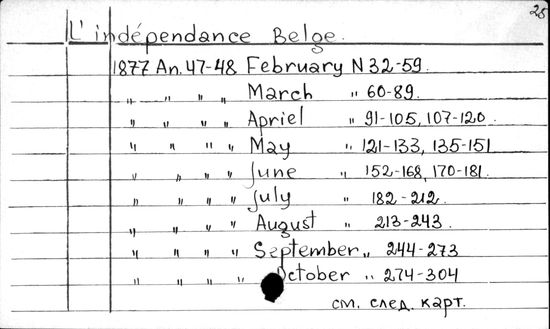 25
L'indépendance Belge.
1877 An. 47-48 February N 32-59.
„ „ „ „ March „ 60-89.
„ „ „ „ Apriel „ 91-105, 107-120
„ „ „ „ May „ 121-133, 135-151
„ „ „ „ June „ 152-168, 170-181.
„ „ „ „ july „ 182-212.
„ „ „ „ August „ 213-243.
„ „ „ „ September „ 244-273
„ „ „ „ October „ 274-304
см. след. карт.